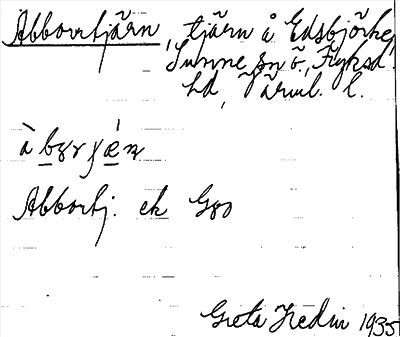 Abborrtjärn, tjärn å Edsbjörke,
Sunne sn ö., Fryksd.
hd, Värml. l.
Abbortj. ek G80
Greta Hedin 1935